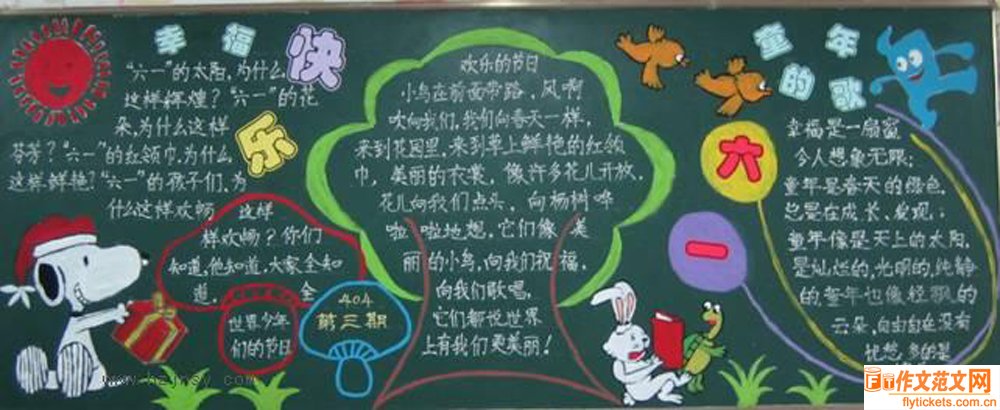 幸福
快
乐
"六一"的太阳,为什么
这样辉煌?"六一"的花
朵,为什么这样
芬芳?"六一"的红领巾,为什么
这样鲜艳?"六一"的孩子们,为
什么这样欢畅 这样
样欢畅?你们
知道,他知道,大家全知
道, 全
世界少年
们的节日
404
第三期
欢乐的节日
小鸟在前面带路,风啊
吹向我们,我们向春天一样,
来到花园里,来到草上鲜艳的红领
巾,美丽的衣裳,像许多花儿开放,
花儿向我们点头,向杨树哗
啦 啦地想,它们像 美
丽的小鸟,向我们祝福,
向我们歌唱,
它们都说世界
上有我们更美丽!
童年
的歌
六
一
幸福是一扇窗
令人想象无限;
童年是春天的绿色,
总是在成长、发现;
童年像是天上的太阳,
是灿烂的,光明的,纯静
的,童年也像轻飘的
云朵,自由自在没有
忧愁,多的是
www.hzjxsy.com
作文范文网
flytickets.com.cn